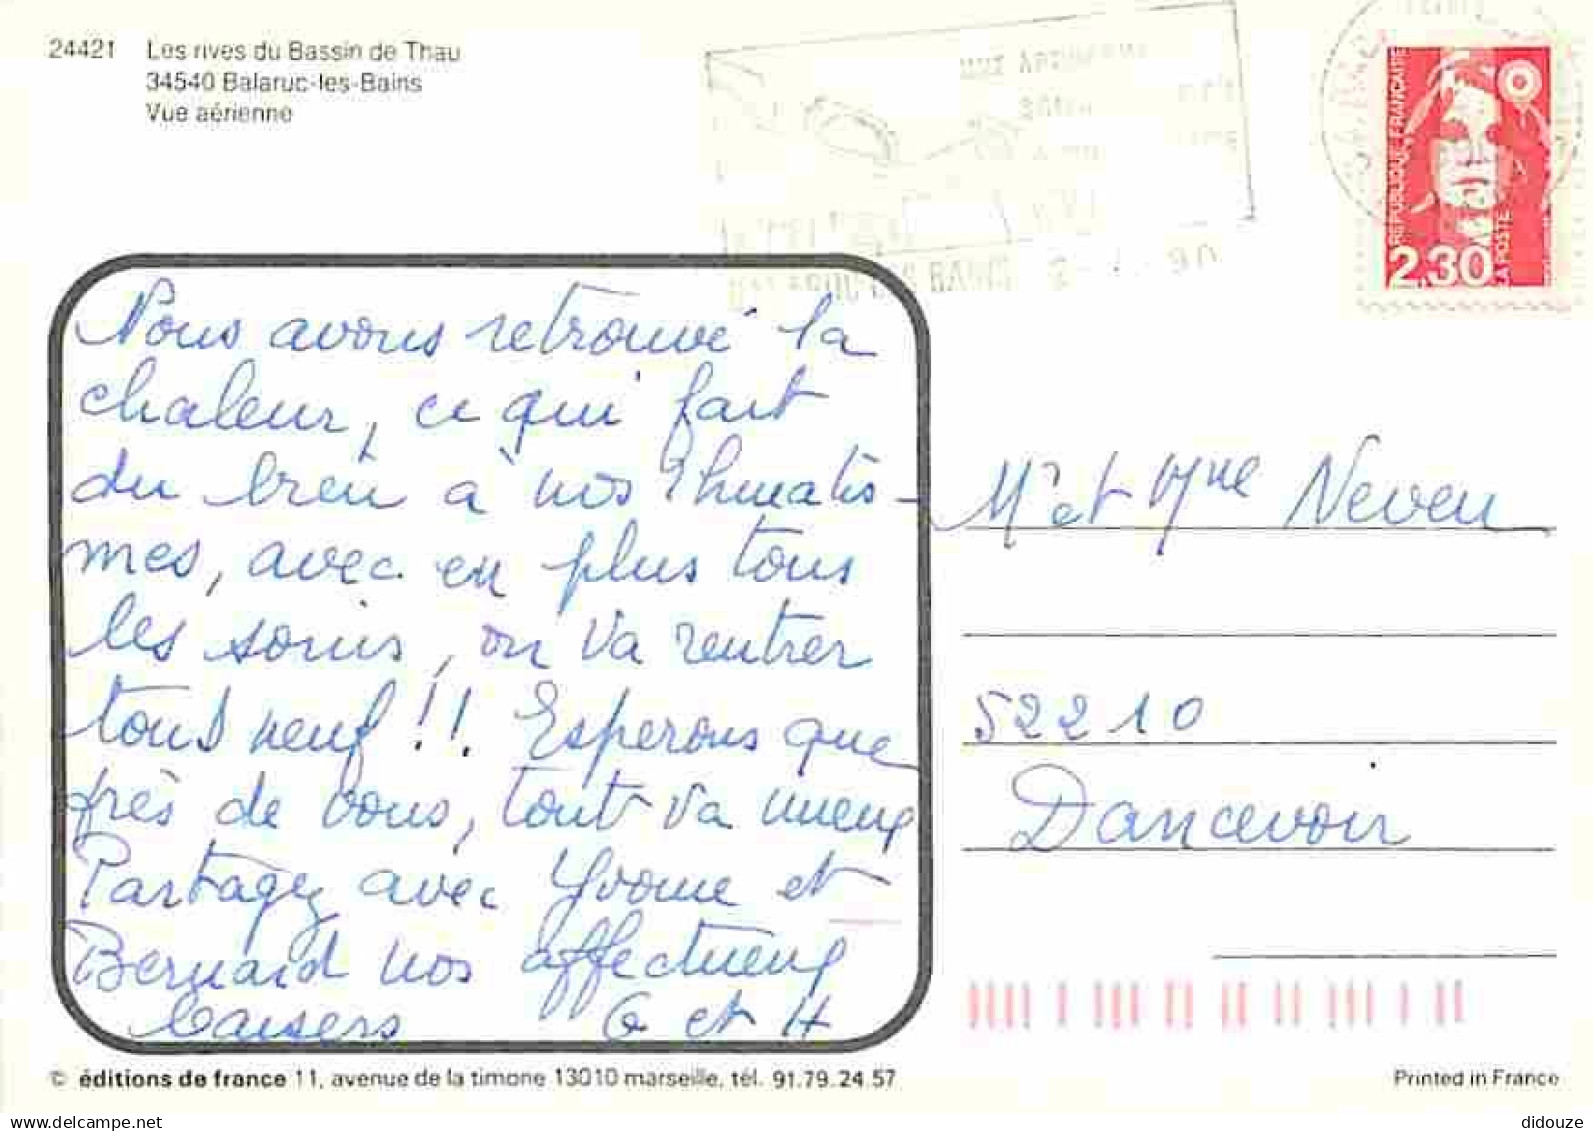 24421 Les rives du Bassin de Thau
34540 Balaruc-les-Bains
Vue aérienne
REPUBLIQUE FRANÇAISE
2,30
LA POSTE
Nous avons retrouvé la
chaleur, ce qui fait
du bien à nos rhumatis-
mes, avec en plus tous
les soins, on va rentrer
tous neuf !! Esperons que
près de vous, tout va mieux
Partagez avec Yvonne et
Bernard nos affectueux
baisers G et H
Mr et Mme Neveu
52210
Dancevoir
© éditions de france 11, avenue de la timone 13010 marseille, tél. 91.79.24.57
Printed in France
didouze
delcampe.net